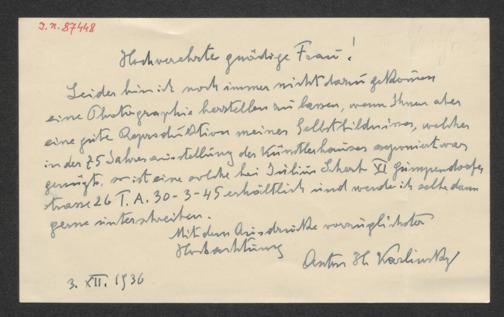 J.N. 87448
Hochverehrte gnädige Frau!
Leider bin ich noch immer nicht dazu gekommen
eine Photographie herstellen zu lassen, wenn Ihnen aber
eine gute Reproduktion meines Selbstbildnisses, welches
in der 75 Jahresausstellung des Künstlerhauses exponiert war
genügt, so ist eine solche bei Julius Scherb XI Gumpendorfer
strasse 26 T.A. 30-3-45 erhältlich und werde ich selbe dann
gerne unterschreiben.
Mit dem Ausdrucke vorzüglichster
Hochachtung
Anton H. Karlinsky
3. XII. 1936